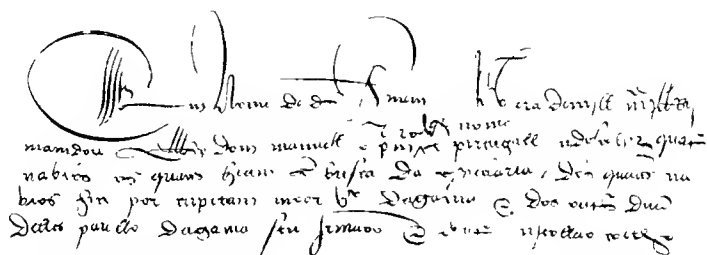 Em Nome de ds Amem Na era de mill
nome
mandou ElRey dom manuell o prim portugall a descobrir quatro
nabios os quaes hiam em busca da especiaria dos quaees na
bios hia por capitam moor Vco dagama e dos outros duu
delles paullo dagama seu Irmaoo e doutro nycollao coelho